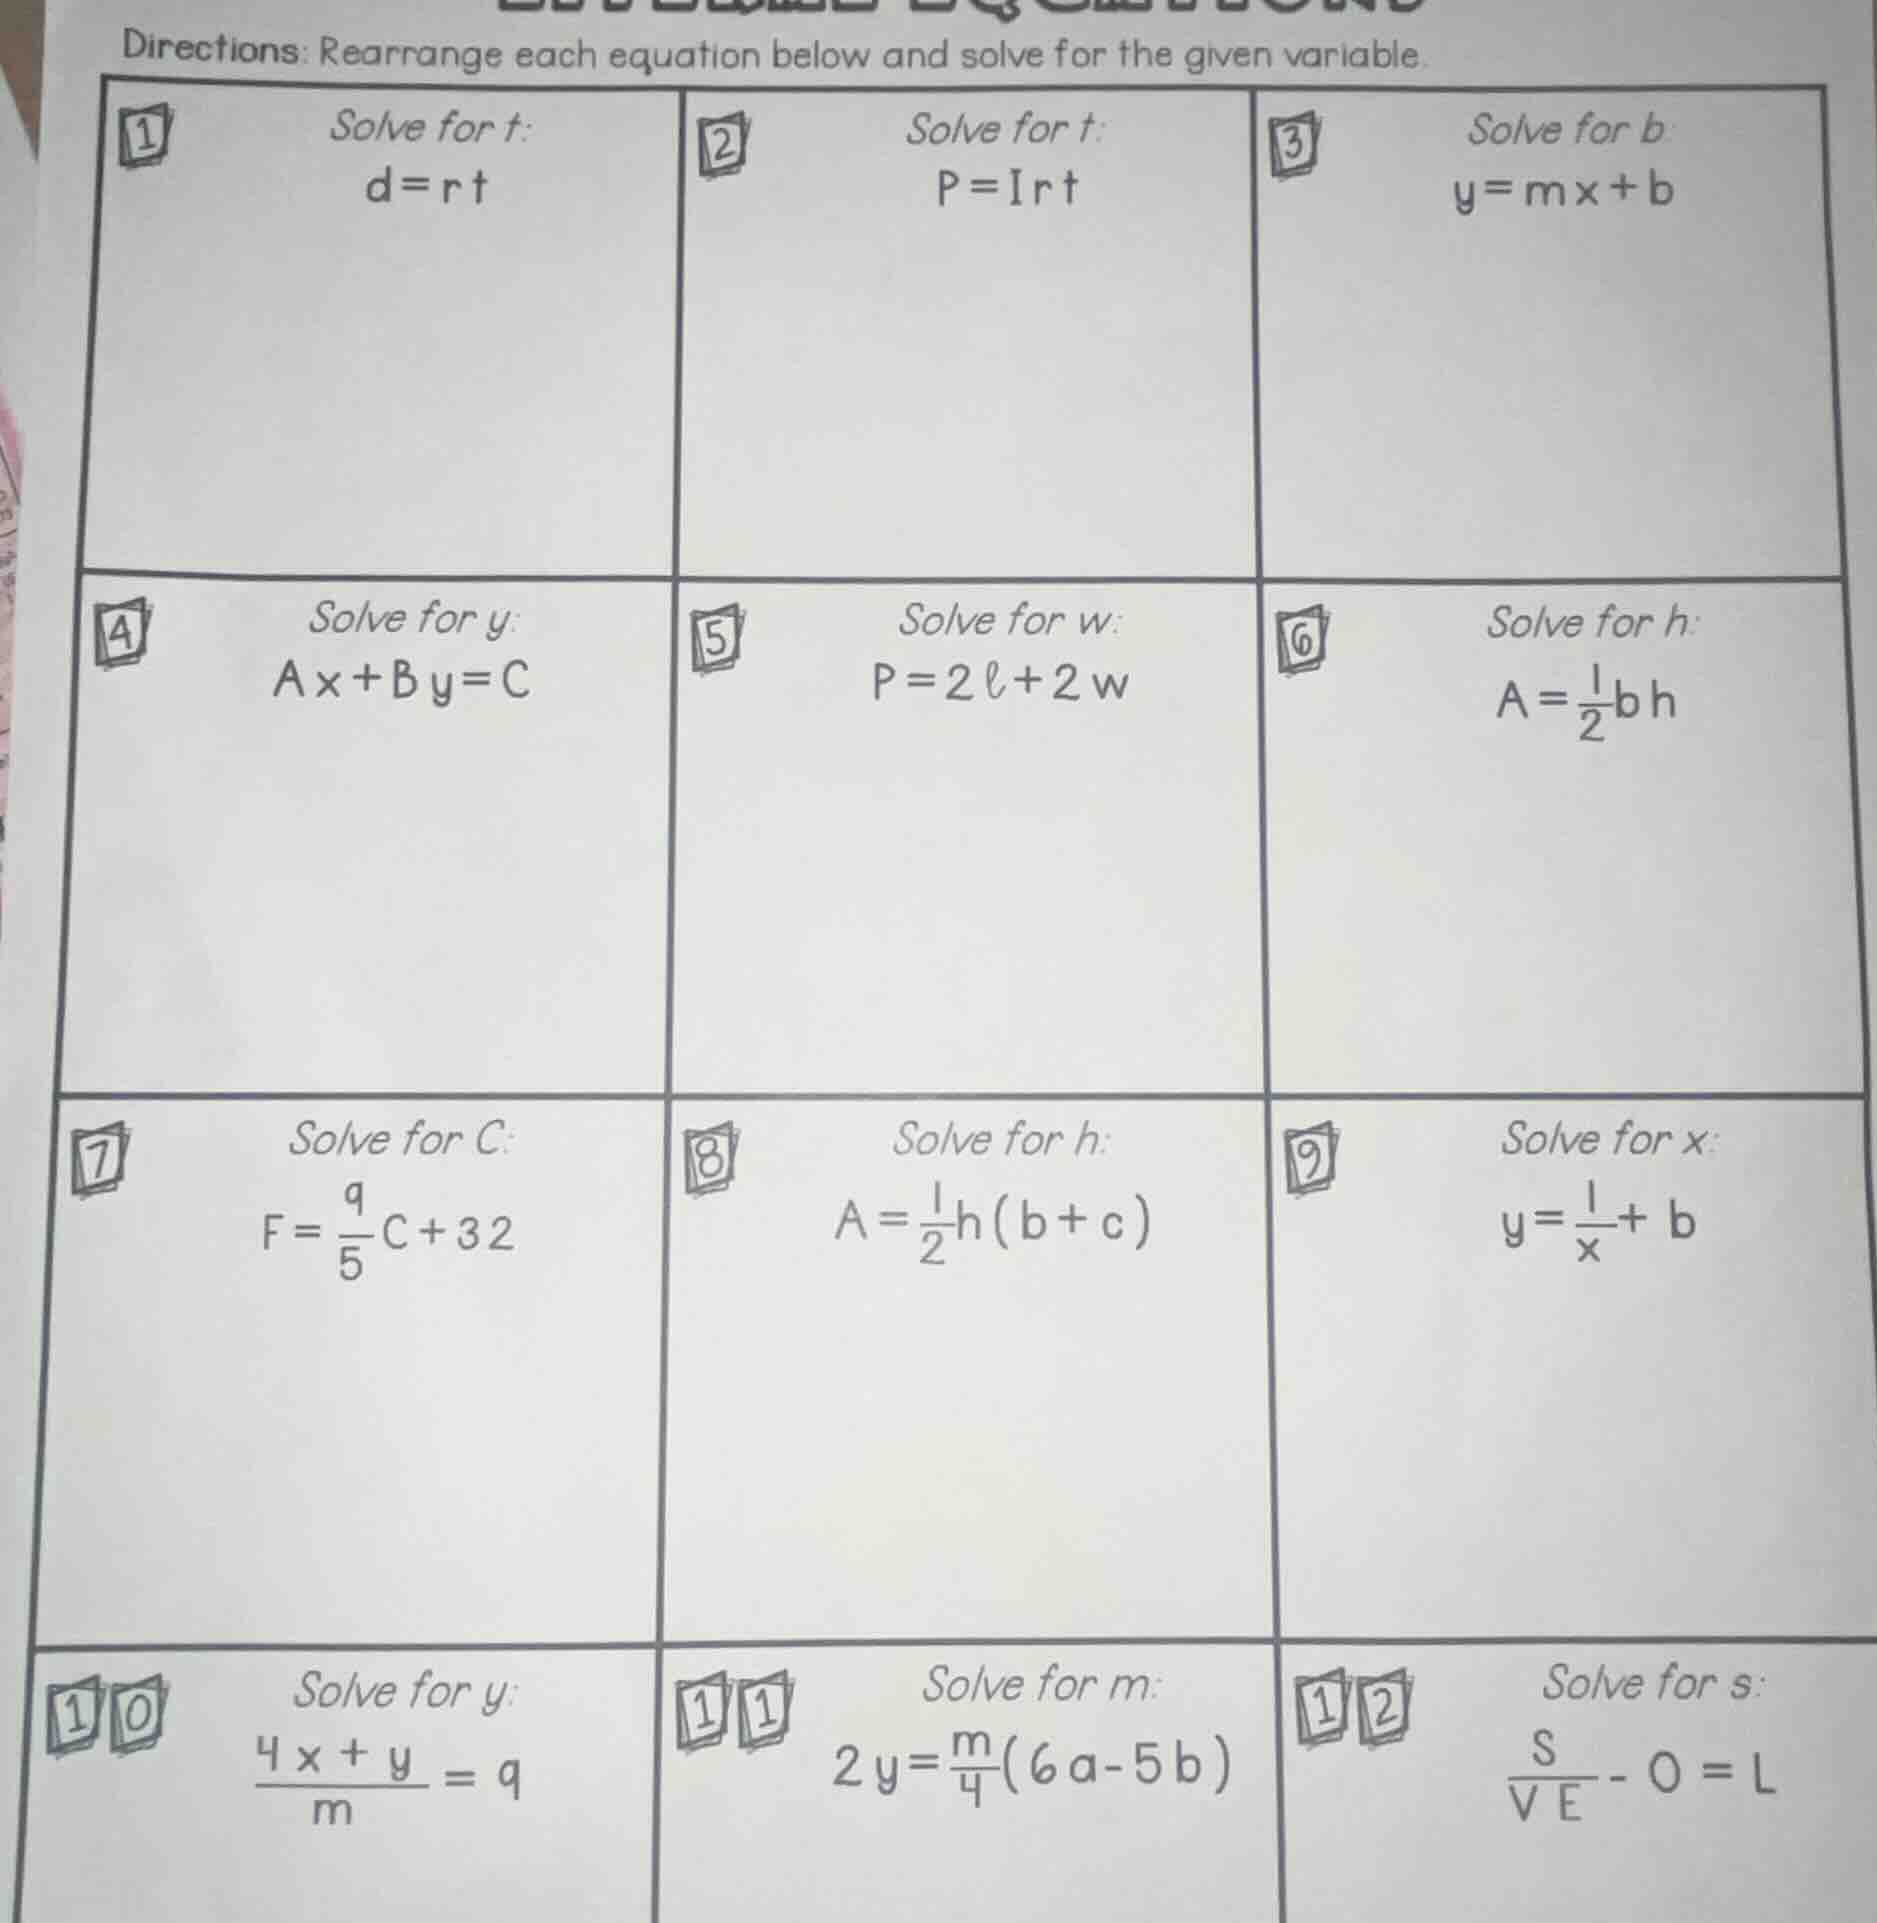 Directions: Rearrange each equation below and solve for the given variable.
1 Solve for t:
d=rt
2 Solve for t:
P=Irt
3 Solve for b:
y=mx+b
4 Solve for y:
Ax+By=C
5 Solve for w:
P=2ℓ+2w
6 Solve for h:
A=1/2bh
7 Solve for C:
F=9/5C+32
8 Solve for h:
A=1/2h(b+c)
9 Solve for x:
y=1/x+ b
10 Solve for y:
4x+y/m = 9
11 Solve for m:
2y=m/4(6a-5b)
12 Solve for s:
S/VE - O = L